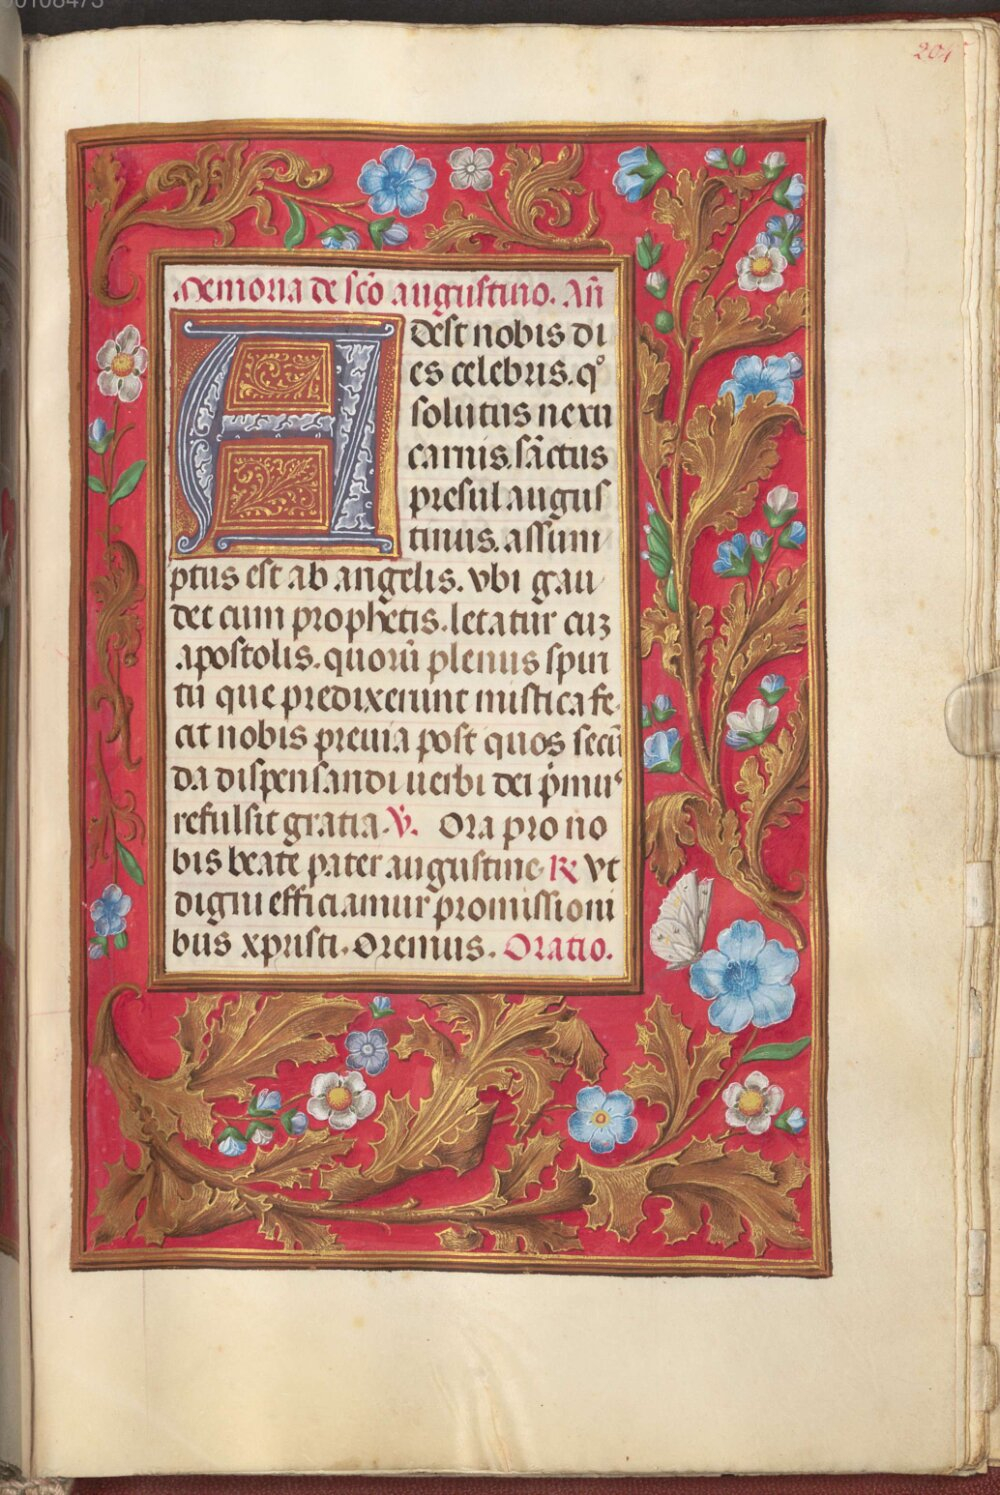 204
Memoria de sc̄o augustino. An̄
Adest nobis di
es celebris. qͦ
solutus nexu
carnis. sāctus
presul augus
tinus. assum
ptus est ab angelis. vbi gau
det cum prophetis. letatur cuz
apostolis. quorū plenus spiri
tū que predixerunt mistica fe
cit nobis preuia post quos secū
da dispensandi uerbi dei p̄mus
refulsit gratia. V̄. Ora pro no
bis beate pater augustine. R Vt
digni efficiamur promissioni
bus xpristi. Oremus. Oratio.